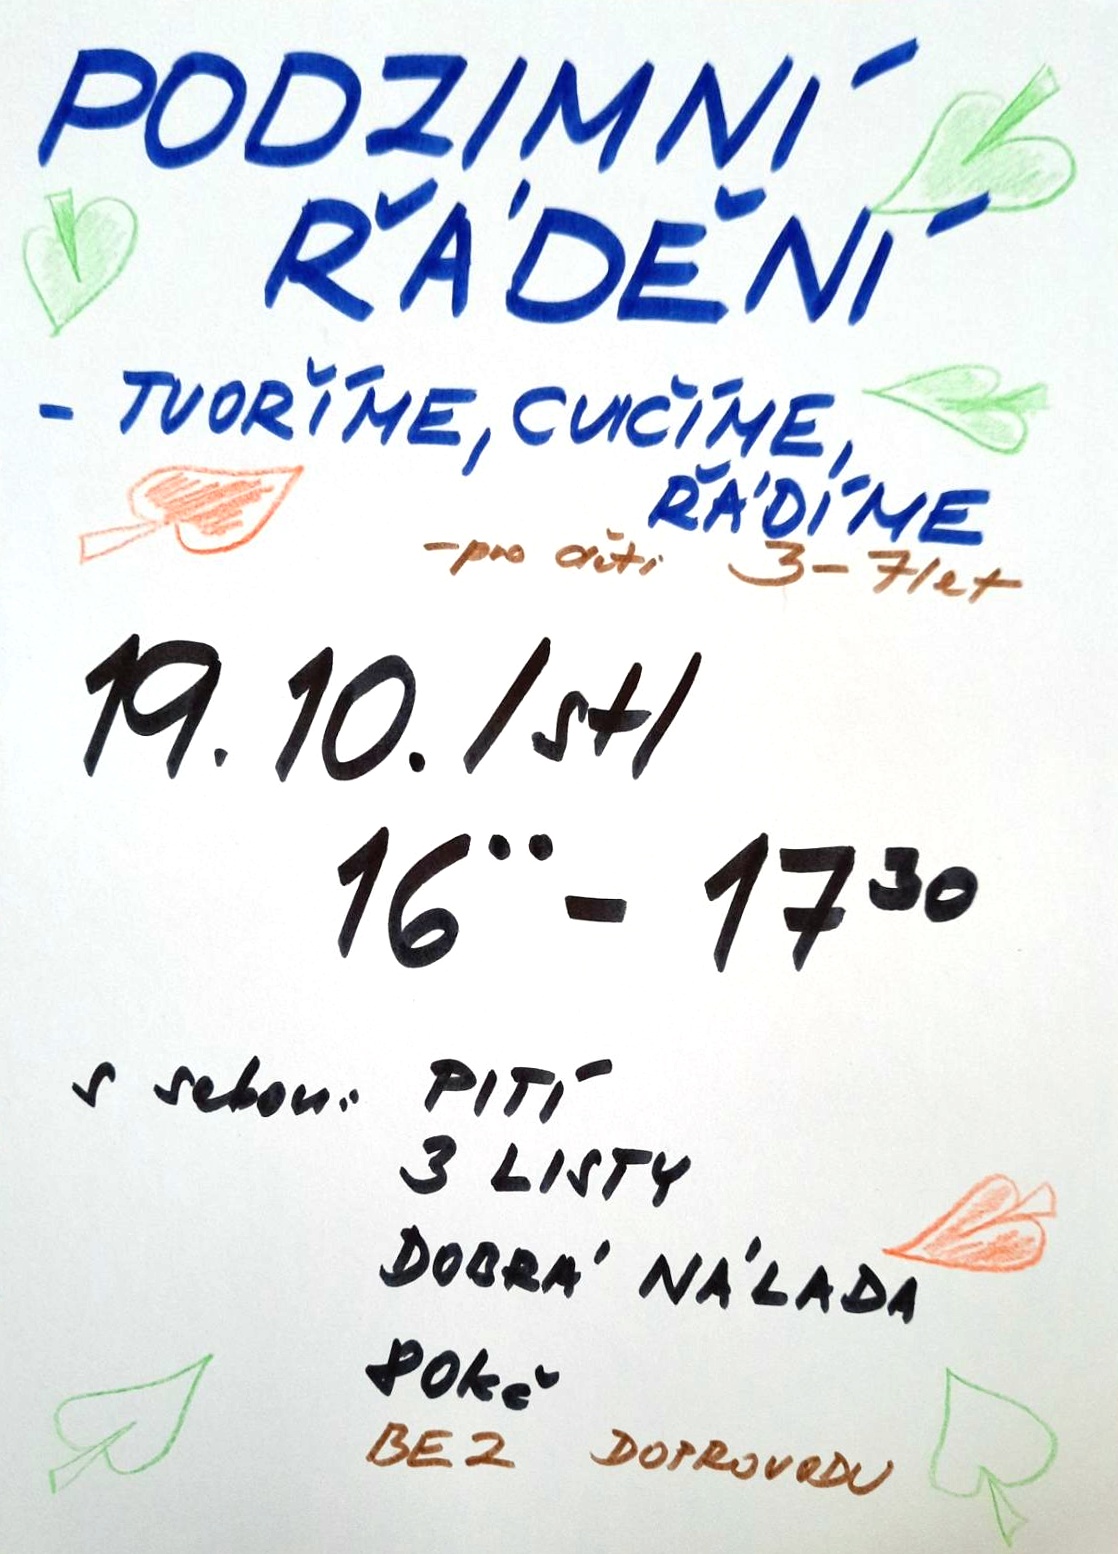 PODZIMNÍ
ŘÁDĚNÍ
- TVOŘÍME, CVIČÍME,
ŘÁDÍME
- pro děti 3 - 7 let
19. 10. /st/
16°° - 17³⁰
s sebou: PITÍ
3 LISTY
DOBRÁ NÁLADA
80kč
BEZ DOPROVODU